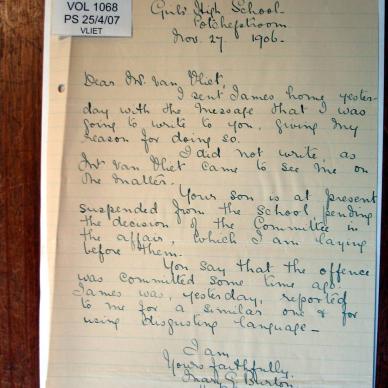 VOL 1068
PS 25/4/07
VLIET
Girls' High School
Potchefstroom
Nov. 27 1906.
Dear Mr. Van Vliet,
I sent James home, yester-
day with the message that I was
going to write to you, giving my
reason for doing so.
I did not write, as
Mr Van Vliet came to see me on
the matter.
Your son is at present
suspended from the School pending
the decision of the Committee in
the affair, which I am laying
before them.
You say that the offence
was committed some time ago.
James was, yesterday, reported
to me for a similar one & for
using disgusting language –
I am
Yours faithfully,
Mary G. Burton